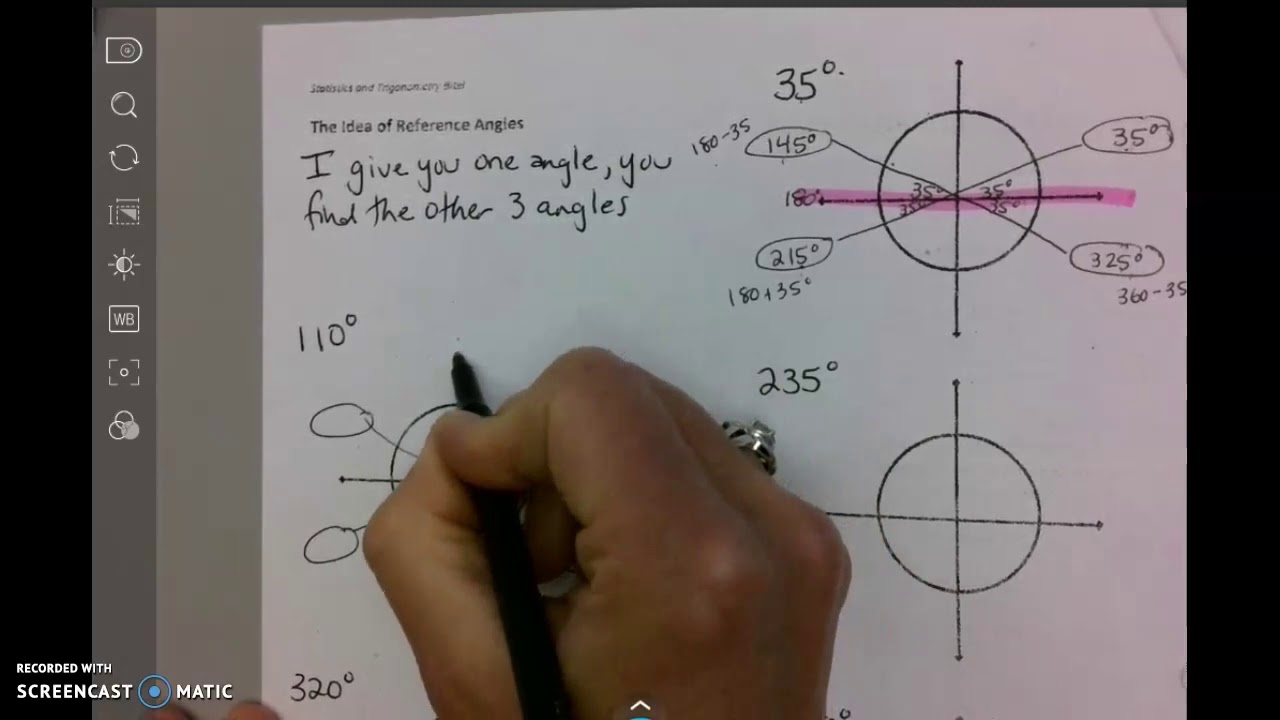 Statistics and Trigonometry Bitel
The Idea of Reference Angles
I give you one angle, you
find the other 3 angles
35°.
180-35
145°
35°
35°
35°
180°
35°
35°
215°
325°
180+35°
360-35
110°
235°
320°
WB
RECORDED WITH
SCREENCAST MATIC